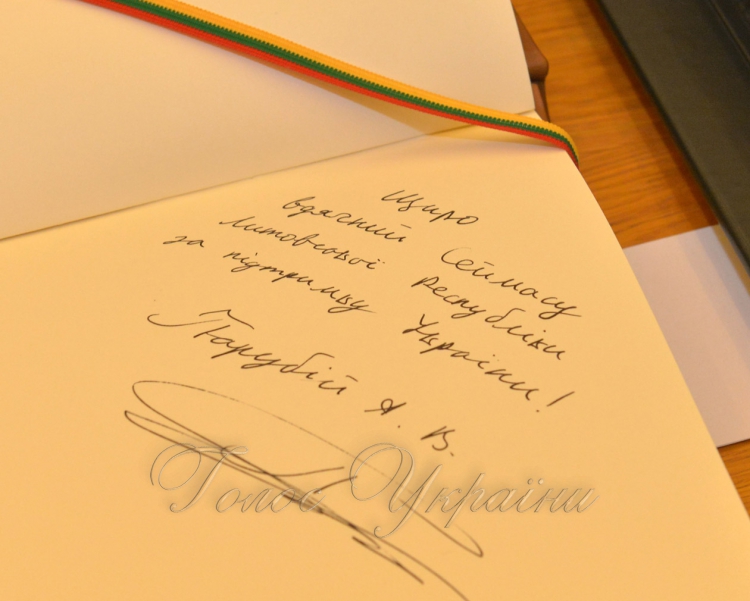 Щиро
вдячний Сеймасу
литовської республіки
за підтримку України!
Парубій А. В.
Голос України